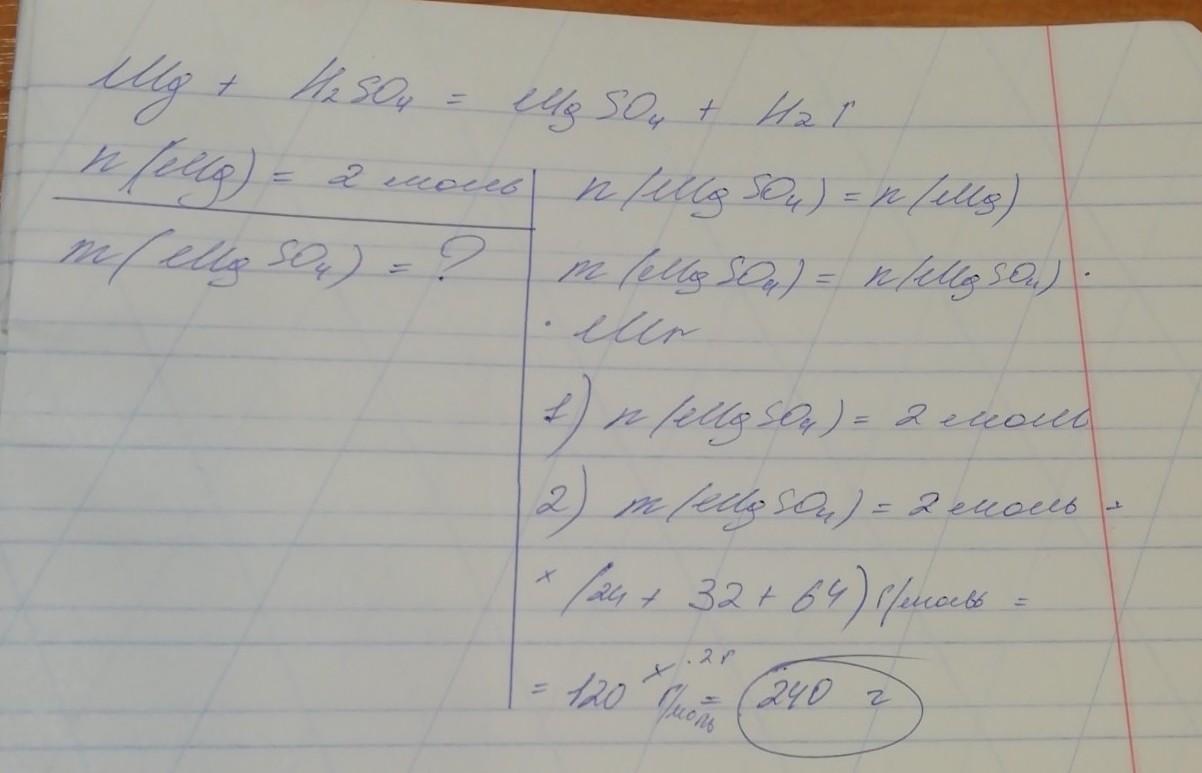 Mg + H₂SO₄ = MgSO₄ + H₂↑
n(Mg) = 2 моль
m(MgSO₄) = ?
n(MgSO₄) = n(Mg)
m(MgSO₄) = n(MgSO₄) ·
· Mr
1) n(MgSO₄) = 2 моль
2) m(MgSO₄) = 2 моль ×
× (24 + 32 + 64) г/моль =
= 120 г/моль = 240 г